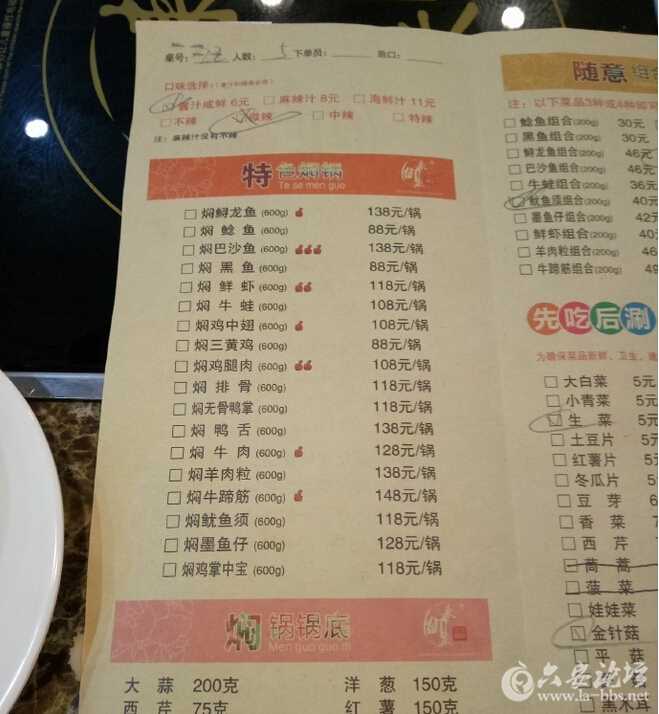 桌号: 人数: 5 下单员: 忌口:
口味选择:
酱汁咸鲜 6元 □麻辣汁 8元 □海鲜汁 11元
□不辣 微辣 □中辣 □特辣
注: 麻辣汁没有不辣
特色焖锅
Te se men guo
□焖鲟龙鱼(600g) 138元/锅
□焖鲶鱼(600g) 88元/锅
□焖巴沙鱼(600g) 138元/锅
□焖黑鱼(600g) 88元/锅
□焖鲜虾(600g) 118元/锅
□焖牛蛙(600g) 108元/锅
□焖鸡中翅(600g) 108元/锅
□焖三黄鸡(600g) 88元/锅
□焖鸡腿肉(600g) 108元/锅
□焖排骨(600g) 118元/锅
□焖无骨鸭掌(600g) 118元/锅
□焖鸭舌(600g) 138元/锅
□焖牛肉(600g) 128元/锅
□焖羊肉粒(600g) 138元/锅
□焖牛蹄筋(600g) 148元/锅
□焖鱿鱼须(600g) 118元/锅
□焖墨鱼仔(600g) 128元/锅
□焖鸡掌中宝(600g) 118元/锅
焖锅锅底
Men guo guo di
大蒜 200克 洋葱 150克
西芹 75克 红薯 150克
随意组合
注: 以下菜品3种或4种即可
□鲶鱼组合(200g) 30元
□黑鱼组合(200g) 30元
□鲟龙鱼组合(200g) 46元
□巴沙鱼组合(200g) 46元
□牛蛙组合(200g) 36元
□鱿鱼须组合(200g) 40元
□墨鱼仔组合(200g) 42元
□鲜虾组合(200g) 40元
□羊肉粒组合(200g) 46
□牛蹄筋组合(200g) 49
先吃后涮
为确保菜品新鲜、卫生、
□大白菜 5元
□小青菜 5元
□生菜 5元
□土豆片 5元
□红薯片 5元
□冬瓜片 5元
□豆芽 6
□香菜
□西芹
□茼蒿
□菠菜
□娃娃菜
□金针菇
□平菇
□黑木耳
六安论坛
www.la-bbs.net